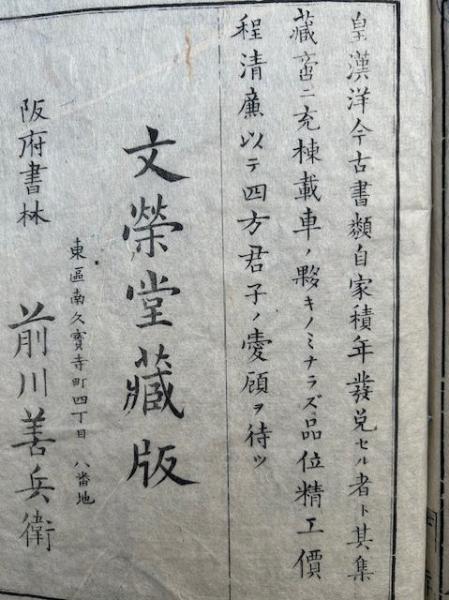 皇漢洋今古書類自家積年發兌セル者ト其集
藏啻ニ充棟載車ノ夥キノミナラズ品位精工價
程清廉以テ四方君子ノ愛顧ヲ待ツ
文榮堂藏版
東區南久寳寺町四丁目 八番地
阪府書林 前川善兵衛